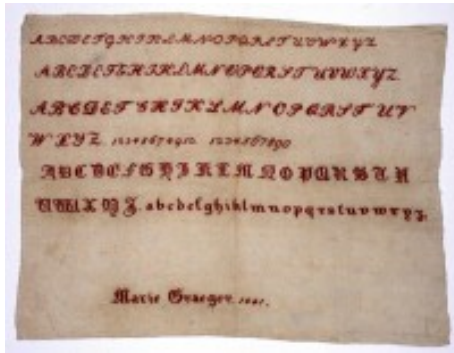 ABCDEFGHIKLMNOPQRSTUVWXYZ
ABCDEFGHIKLMNOPQRSTUVWXYZ
ABCDEFGHIKLMNOPQRSTUV
WXYZ 1234567890 1234567890
ABCDEFGHIKLMNOPQRSTU
VWXYZ. abcdefghiklmnopqrstuvwxyz.
Marie Graeger.